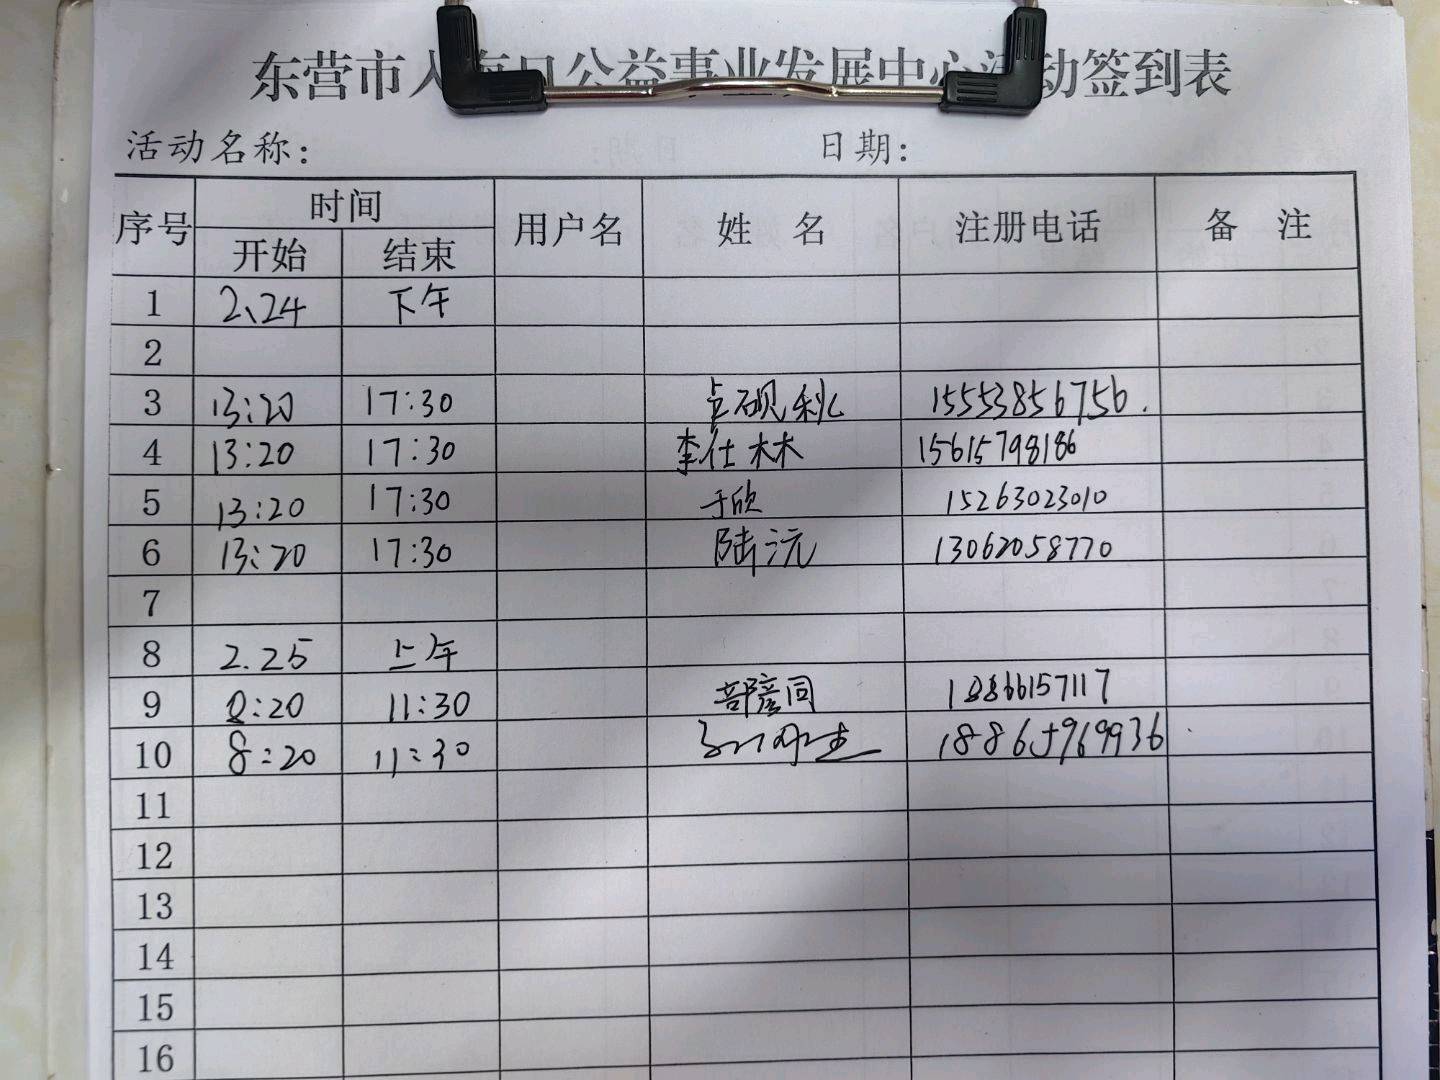 东营市入海口公益事业发展中心活动签到表
活动名称: 日期:
序号 时间 用户名 姓 名 注册电话 备 注
开始 结束
1 2、24 下午
2
3 13:20 17:30 15553856756.
4 13:20 17:30 李仕林 15615798186
5 13:20 17:30 于欣 15263023010
6 13:20 17:30 陆沅 13062058770
7
8 2.25 上午
9 8:20 11:30 部彦同 18866157117
10 8:20 11:30 18865969936
11
12
13
14
15
16